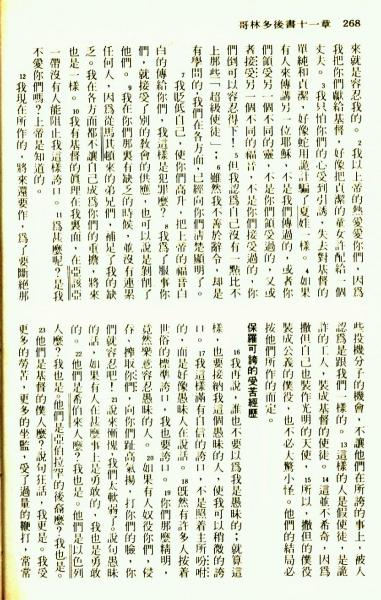 哥林多後書十一章　268
來就是容忍我的。2我以上帝的熱愛愛你們，因爲
我把你們獻給基督，好像把貞潔的童女許配給一個
丈夫。3我只怕你們的心受到引誘，失去對基督的
單純和貞潔，好像蛇用詭計騙了夏娃一樣。4如果
有人來傳講另一位耶穌，不是我們傳過的，或者你
們領受另一個不同的靈，不是你們領受過的，又或
者接受另一個不同的福音，不是你們接受過的，你
們倒可以容忍得下！5但我認爲自己沒有一點比不
上那些「超級使徒」；6雖然我不善於辭令，却是
有學問的，我們在各方面，已經向你們清楚顯明了。
7我貶低自己，使你們高升，把上帝的福音白
白的傳給你們，我這樣是犯罪麼？8我爲了服事你
們，就接受了別的教會的供應，也可以說是剝削了
他們。9我在你們那裏有缺乏的時候，並沒有連累
任何人，因爲從馬其頓來的弟兄們，補足了我的缺
乏。我在各方面都不讓自己成爲你們的重擔，將來
也是一樣。10我有基督的眞理在我裏面，在亞該亞
一帶沒有人能阻止我這樣誇口。11爲甚麼呢？是我
不愛你們嗎？上帝是知道的。
12我現在所作的，將來還要作，爲了要斷絕那
些投機分子的機會，不讓他們在所誇的事上，被人
認爲是跟我們一樣的。13這樣的人是假使徒，是詭
詐的工人，裝成基督的使徒。14這並不希奇，因爲
撒但自己也裝作光明的天使，15所以，撒但的僕役
裝成公義的僕役，也不必大驚小怪。他們的結局必
按他們所作的而定。
保羅可誇的受苦經歷
16我再說，誰也不要以爲我是愚昧的；就算這
樣，也要接納我這個愚昧的人，使我可以稍微的誇
口。17我這樣滿有自信的誇口，不是照着主所吩咐
的，而是好像愚昧人在說話。18旣然有許多人按着
世俗的標準誇口，我也要誇口。19你們那麼精明，
竟然樂意容忍愚昧的人。20如果有人奴役你們，侵
吞、榨取你們，向你們趾高氣揚，打你們的臉，你
們就容忍吧！21說來慚愧，我們太軟弱了。說句愚昧
的話，如果有人在甚麼事上是勇敢的，我也是勇敢
的。22他們是希伯來人麼？我也是。他們是以色列
人麼？我也是。他們是亞伯拉罕的後裔麼？我也是。
23他們是基督的僕人麼？說句狂話，我更是。我受
更多的勞苦，更多的坐監，受了過量的鞭打，常常